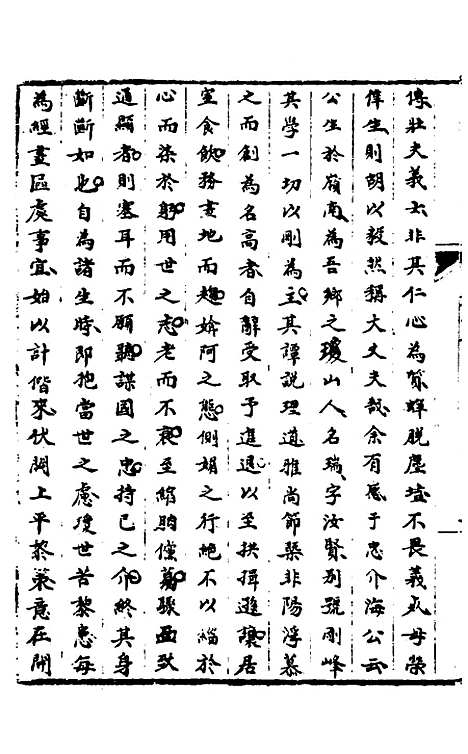 傳壯夫義士非其仁心為質蟬脫塵壒不畏義死毋榮
倖生則胡以毅然稱大丈夫哉余有感于忠介海公云
公生於嶺南為吾鄉之瓊山人名瑞字汝賢别號剛峰
其學一切以剛為主其譚說理道雅尚節槩非陽浮慕
之而創為名高者自辭受取予進退以至拱揖遜讓居
室食飲務畫地而趨媕阿之態側媚之行絶不以緇於
心而染於躬用世之志老而不衰至縮朒僅葛張亟致
通顯者則塞耳而不願聽謀國之忠持已之介終其身
斷斷如也自為諸生時即抱當世之慮瓊世苦黎患每
為經畫區處事宜始以計偕來伏闕上平黎策意在開